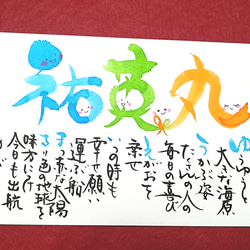 祐英丸
ゆうゆうと
大きな海原
うかぶ姿
たくさんの人の
毎日の喜び
幸せ
えがおを
いつの時も
幸せ願い
運ぶ船
まっ赤な太陽
るり色の地球を
味方につけ
今日も出航